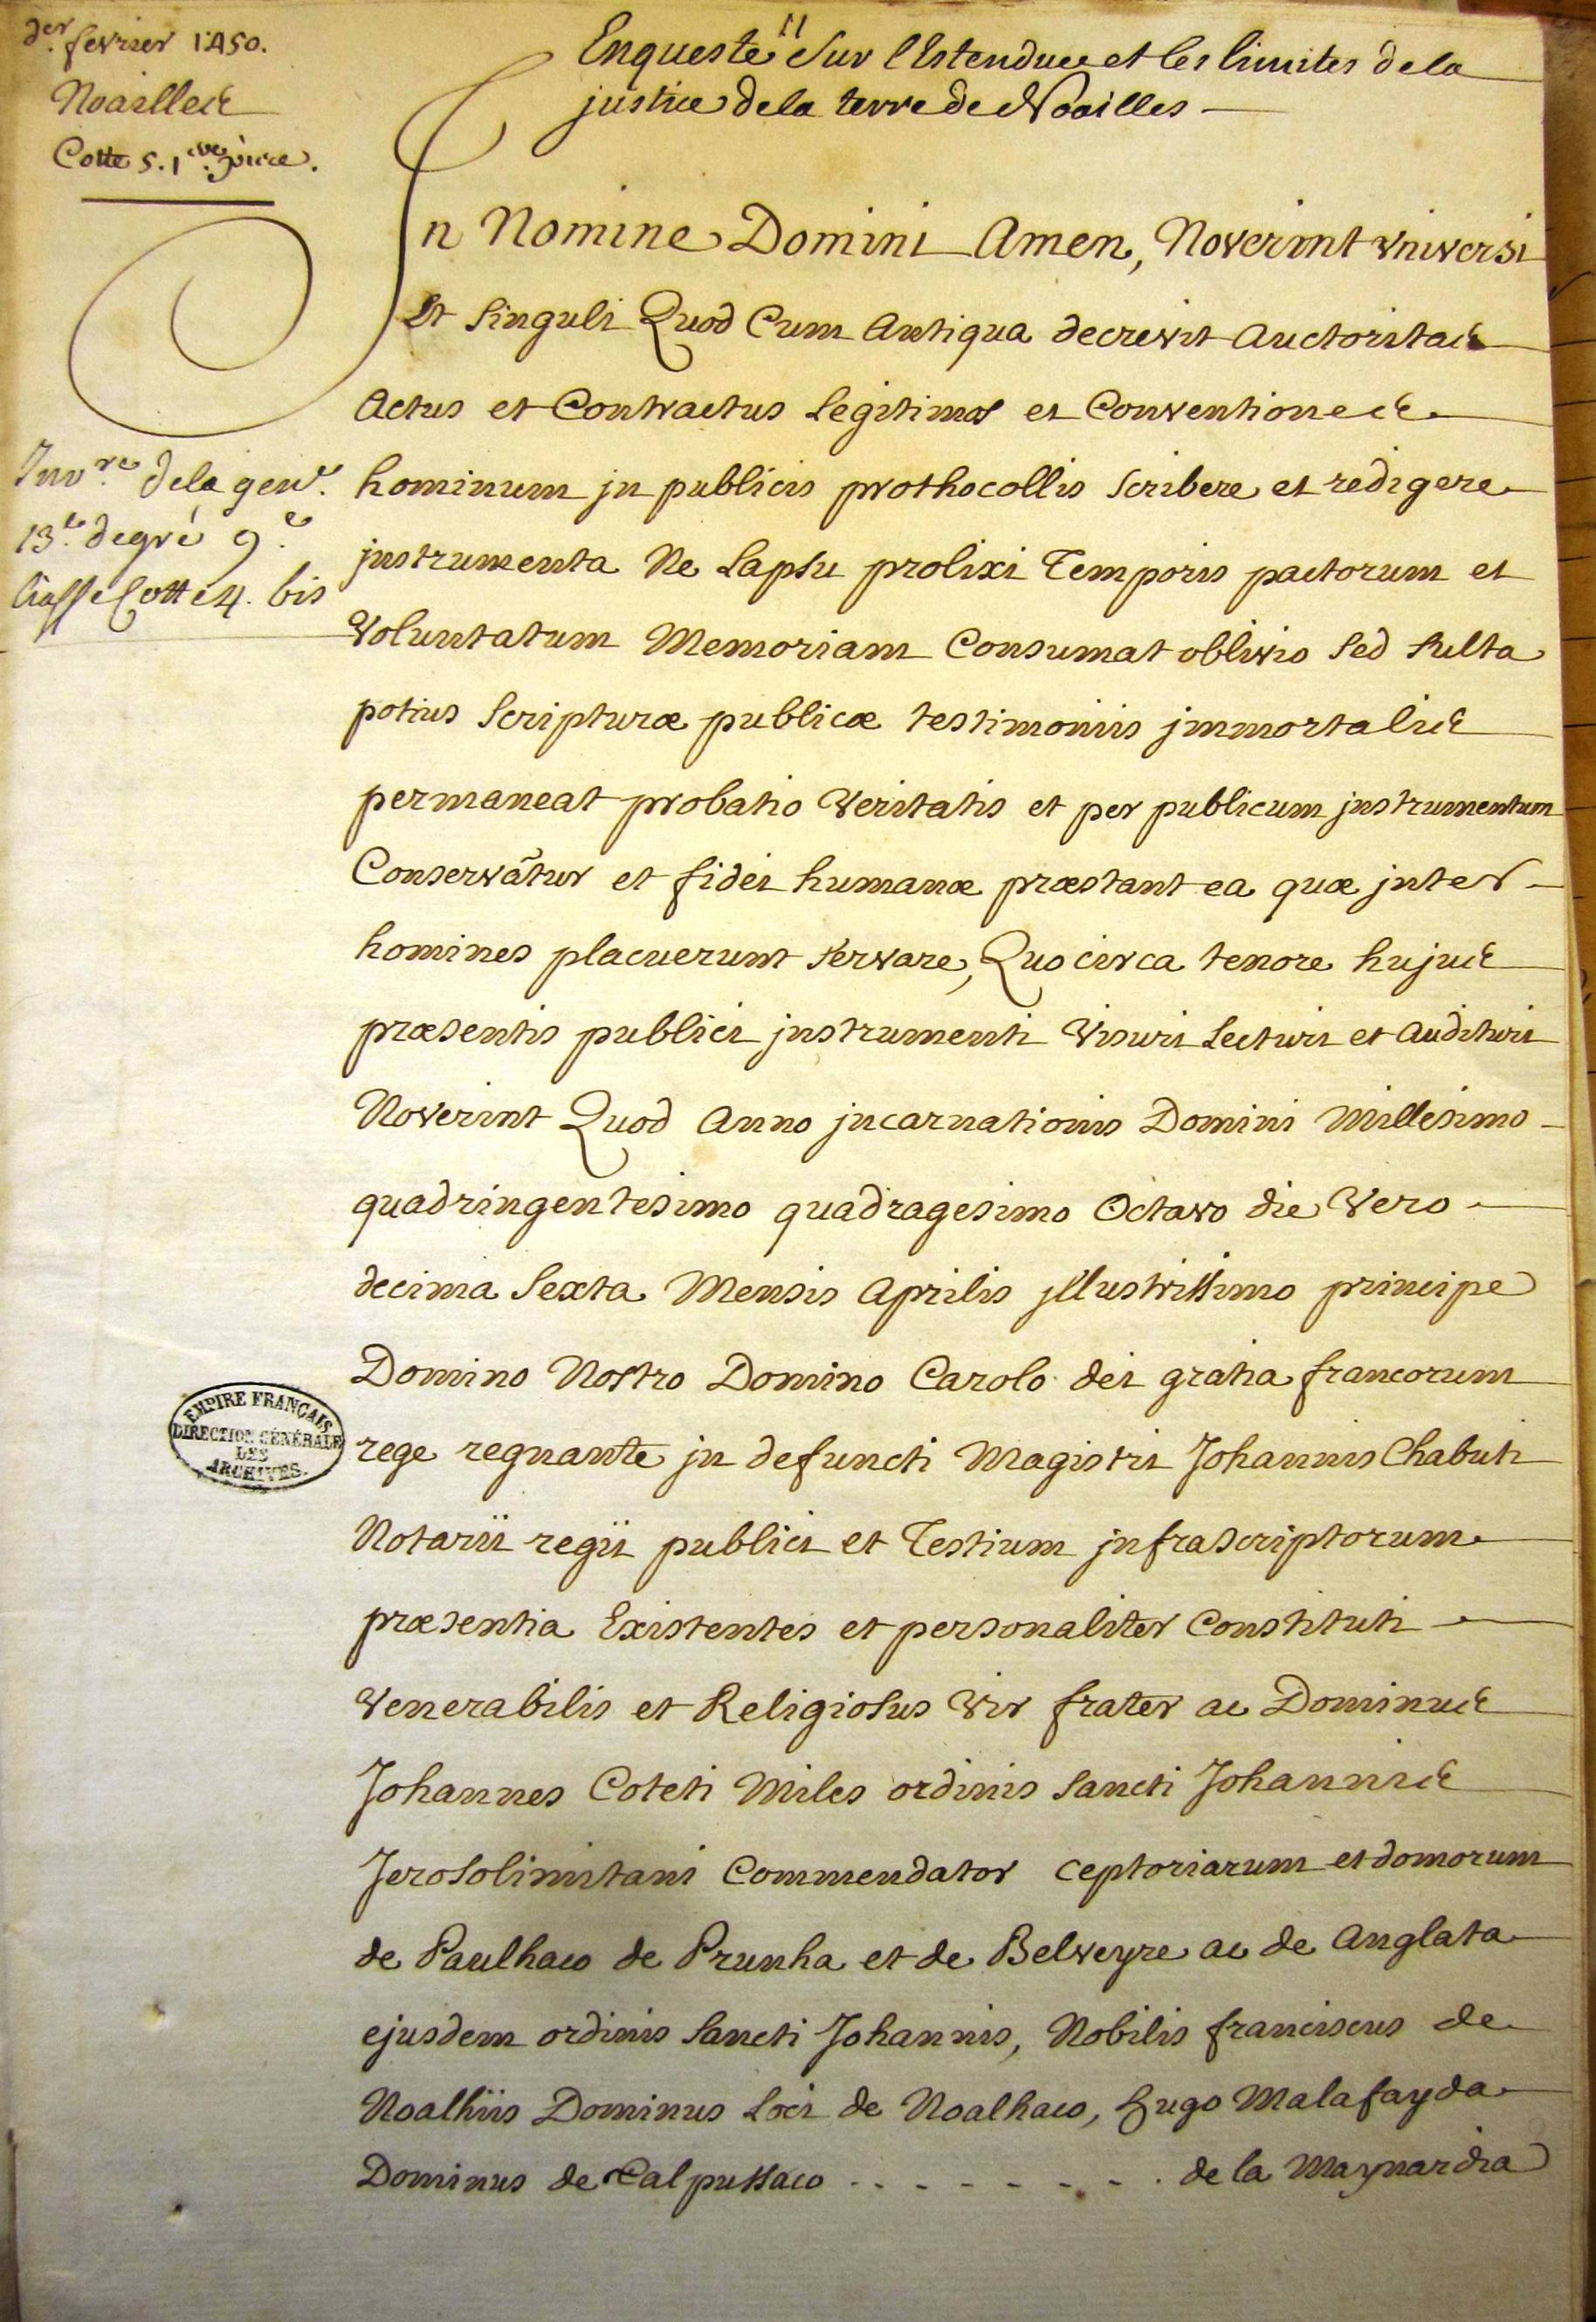 der février 1450.
Noailles
Cotte 5. 1ere piece.
Enqueste sur l'Estendue et les limites de la
justice de la terre de Noailles
In Nomine Domini Amen, Noverint Vniversi
Et Singuli Quod Cum Antiqua decrevit Auctoritas
Actus et Contractus Legitimos et Conventiones
hominum jn publicis prothocollis Scribere et redigere
jnstrumenta Ne Lapsu prolixi Temporis pactorum et
Voluntatum Memoriam Consumat oblivio Sed Sulta
potius Scripturæ publicæ testimoniis jmmortalis
permaneat probatio Veritatis et per publicum jnstrumentum
Conservãtur et fidei humanæ præstant ea quæ jnter
homines placuerunt Servare, Quocirca tenore hujus
præsentis publici jnstrumenti Visuri Lecturi et Audituri
Noverint Quod Anno jncarnationis Domini Millesimo
quadringentesimo quadragesimo Octavo die Vero
decima Sexta Mensis Aprilis jllustrissimo principe
Domino Nostro Domino Carolo dei gratia francorum
rege regnante jn defuncti Magistri Johannis Chabuti
Notarii regii publici et Testium jnfrascriptorum
præsentia Existentes et personaliter Constituti
Venerabilis et Religiosus Vir frater ac Dominus
Johannes Coteti Miles ordinis Sancti Johannis
Jerosolimitani Commendator ceptoriarum et domorum
de Paulhaco de Prunha et de Belveyre ac de Anglata
ejusdem ordinis Sancti Johannis, Nobilis franciscus de
Noalhiis Dominus Loci de Noalhaco, Hugo Malafayda
Dominus de Calpussaco . . . . . . . . . de la Maynardia
Invre. de la gene.
13e. degré 9e.
liasse Cotte 4. bis
EMPIRE FRANÇAIS
DIRECTION GÉNÉRALE
DES
ARCHIVES.